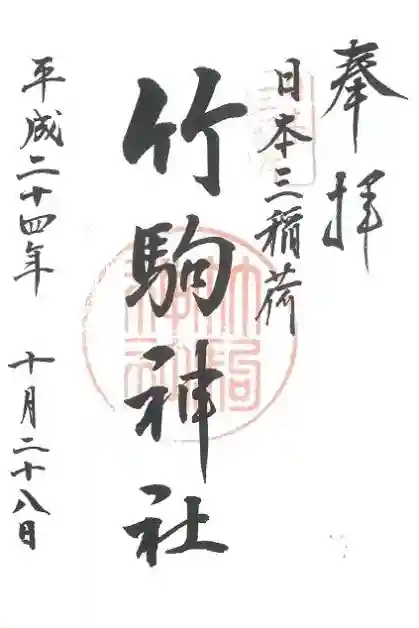 奉拝
日本三稲荷
竹駒神社
平成二十四年 十月二十八日
竹駒神社